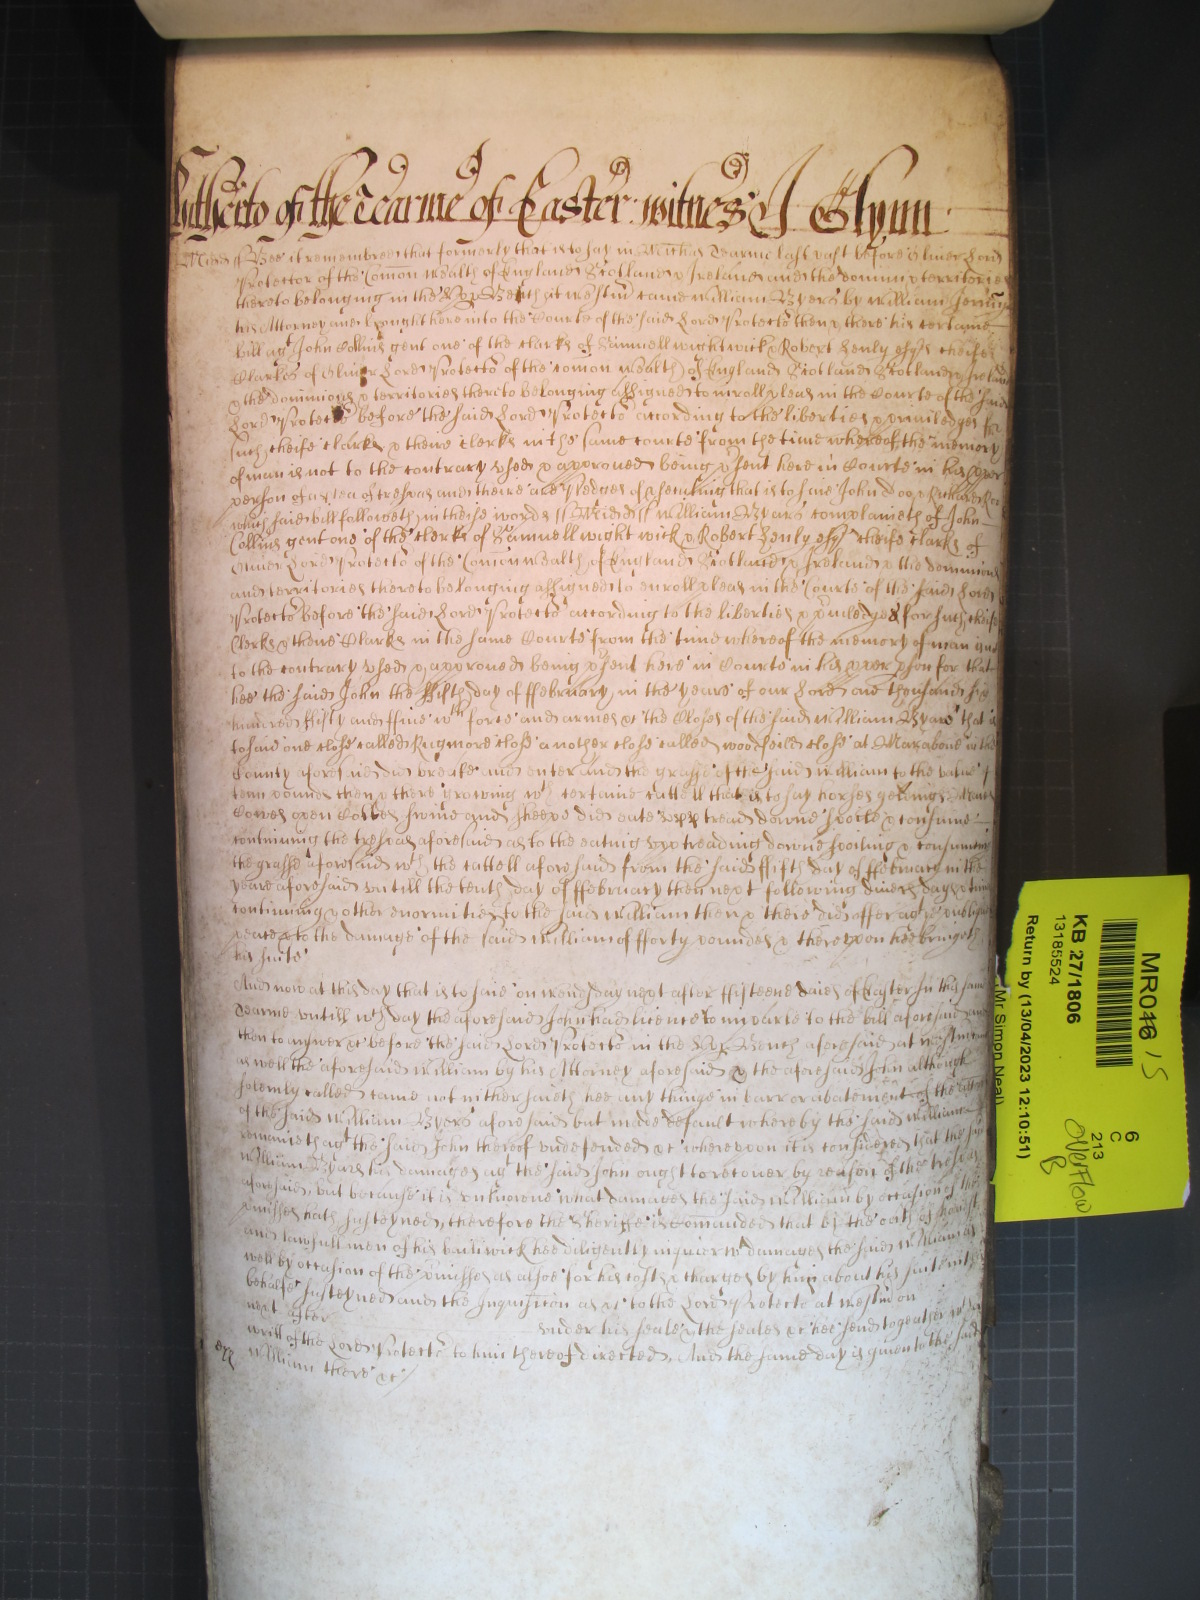 Hitherto of the Tearme of Easter witnes J Glynn
Midds ss Bee it remembred that formerly that is to say in Michas Tearme last past before Oliver Lord
Protector of the Comon wealth of England Scotland & Ireland and the dominions & territories
thereto belonging in the Upp Bench at Westmr came William Byers by William
his Attorney and brought here into the Courte of the said Lord Protector then & there his certaine
bill agt John Collins gent one of the Clarks of Samuell wightwick & Robert Henly esqrs cheife
Clarkes of Oliver Lord Protector of the comon wealth of England Scotland Scotland & Ireland
& the dominions & territories thereto belonging assigned to inroll pleas in the Courte of the said
Lord Protector before the said Lord Protector according to the liberties & priviledges for
such cheife clarks & theire clerks in the same courte from the time whereof the memory
of man is not to the contrary used & approoved being psent here in Courte in his pper
person of a plea of trespas and theire are pledges of psecuting that is to saie John Doo & Richard Roo
which said bill followeth in theise words ss Midds ss William Byars complaineth of John
Collins gent one of the clerks of Samuell wight wick & Robert Henly esqrs cheife clarks of
Oliver Lord Protector of the Comon wealth of England Scotland & Ireland & the dominions
and territories thereto belonging assigned to enroll pleas in the Courte of the said Lord
Protector before the said Lord Protector according to the liberties & priviledges for such cheife
Clerks & theire Clarks in the same Courte from the time whereof the memory of man is not
to the contrary used & approoved being psent here in Courte in his pper pson for that
hee the said John the ffifth day of ffebruary in the yeare of our Lord one thousand six
hundred ffifty and ffive wth force and armes &c the Closes of the said William Byars that is
to say one close called Rugmore close another close called woodfeild close at Marabone in the
County aforesaid did breake and enter and the grasse of the said William to the value of
tenn pounds then & there growing wth certaine cattell that is to say horses geldings Mares
Cowes oxen Colts swine and sheepe did eate upp tread downe spoile & consume
continuing the trespas aforesaid as to the eating upp treading downe spoiling & consuming
the grasse aforesaid wth the cattell aforesaid from the said ffifth day of ffebruary in the
yeare aforesaid untill the tenth day of ffebruary then next following divers dayes & times
continuing & other enormities to the said William then & there did offer agt ye publique
peace & to the damage of the said William of fforty poundes & thereupon hee bringeth
his suite
And now at this day that is to saie on wensday next after ffifteene daies of Easter in this same
Tearme untill wch day the aforesaid John had licence to imparle to the bill aforesaid and
then to answer &c before the said Lord Protector in the Upp Bench aforesaid at Westminster
as well the aforesaid William by his Attorney aforesaid & the aforesaid John although
solemly called came not nither saieth hee any thinge in barr or abatement of the
of the said William Byers aforesaid but made default whereby the said William
remaineth agt the said John thereof undefended &c whereupon it is considered that the said
William Byars his damages agt the said John ought to recover by reason of the trespas
aforesaid but because it is unknowne what damages the said William by occasion of the
pmisses hath susteyned, therefore the Sheriffe is comanded that by the oath of honest
and lawfull men of his bailiwick hee diligently inquier wt damages the said William as
well by occasion of the pmisses as alsoe for his costs & charges by him about his suite in this
behalfe susteyned and the Inquisicon as &c to the Lord Protector at Westmr on
next after under his seale & the seales &c hee send togeather wth the
writt of the Lord Protector to him thereof directed, And the same day is given to the said
William there &c
MR046 / 5
KB 27/1806
13185524
Return by (13/04/2023 12:10:51)
(Mr Simon Neal)
6
C
213
Overflow
B